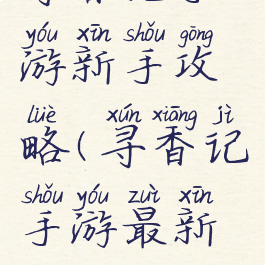 yóu xīn shǒu gōng
游新手攻
lüè xún xiāng jì
略(寻香记
shǒu yóu zuì xīn
手游最新